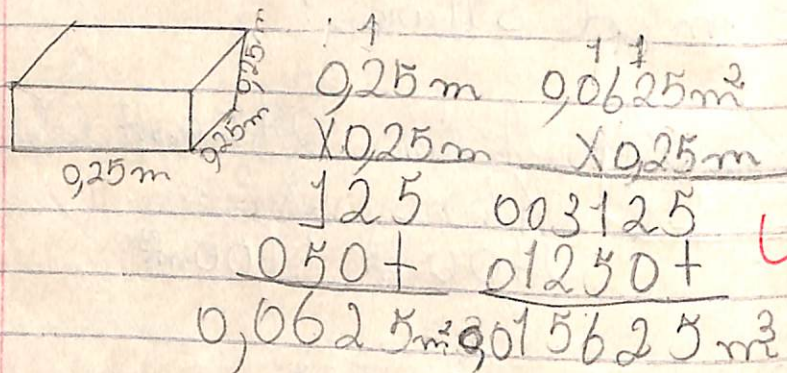 0,25m
0,25m
0,25m
1
0,25m
X0,25m
125
050+
0,0625m²
1 1
0,0625m²
X0,25m
003125
01250+
0,015625m³